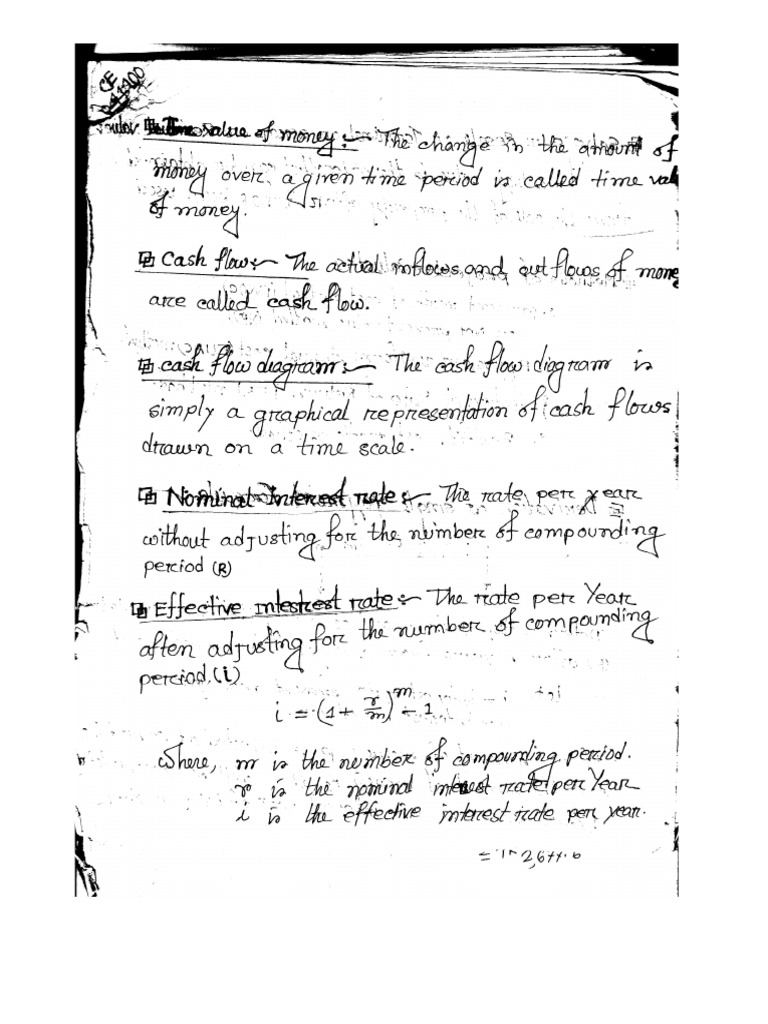 CE
Time value of money:- The change in the amount of
money over a given time period is called time val
of money.
Cash flow:- The actual inflows and out flows of money
are called cash flow.
cash flow diagram:- The cash flow diagram is
simply a graphical representation of cash flows
drawn on a time scale.
Nominal Interest rate:- The rate per year
without adjusting for the number of compounding
period (R)
Effective interest rate:- The rate per Year
after adjusting for the number of compounding
period. (i)
i = (1 + r/m)^m - 1
Where, m is the number of compounding period.
r is the nominal interest rate per Year
i is the effective interest rate per year.